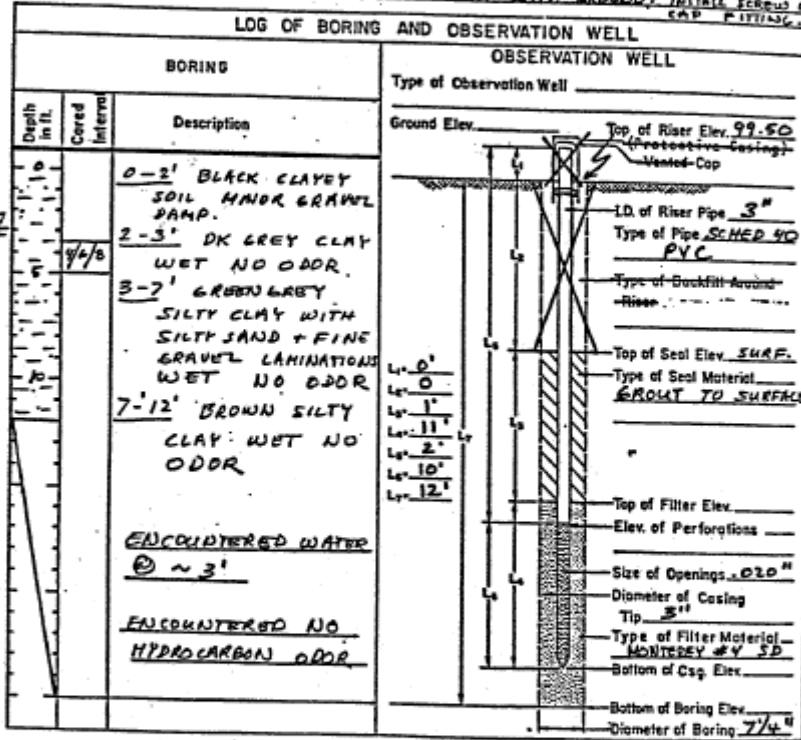 INSTALL SCREW
CAP FITTING.
LOG OF BORING AND OBSERVATION WELL
BORING
Depth in ft.
Cored Interval
Description
0
5
10
4/6/8
0-2' BLACK CLAYEY
SOIL MINOR GRAVEL
DAMP.
2-3' DK GREY CLAY
WET NO ODOR
3-7' GREENGREY
SILTY CLAY WITH
SILTY SAND + FINE
GRAVEL LAMINATIONS
WET NO ODOR
7-12' BROWN SILTY
CLAY WET NO
ODOR
ENCOUNTERED WATER
@ ~ 3'
ENCOUNTERED NO
HYDROCARBON ODOR
OBSERVATION WELL
Type of Observation Well
Ground Elev.
Top of Riser Elev. 99.50
(Protective Casing)
Vented Cap
I.D. of Riser Pipe 3"
Type of Pipe SCHED 40
PVC
Type of Backfill Around
Riser
Top of Seal Elev. SURF.
Type of Seal Material
GROUT TO SURFACE
L₁= 0'
L₂= 0
L₃= 1'
L₄= 11'
L₅= 2'
L₆= 10'
L₇= 12'
L₁
L₂
L₅
L₃
L₇
L₆
L₄
Top of Filter Elev.
Elev. of Perforations
Size of Openings .020"
Diameter of Casing
Tip 3"
Type of Filter Material
MONTEREY #4 SD
Bottom of Csg. Elev.
Bottom of Boring Elev.
Diameter of Boring 7 1/4"